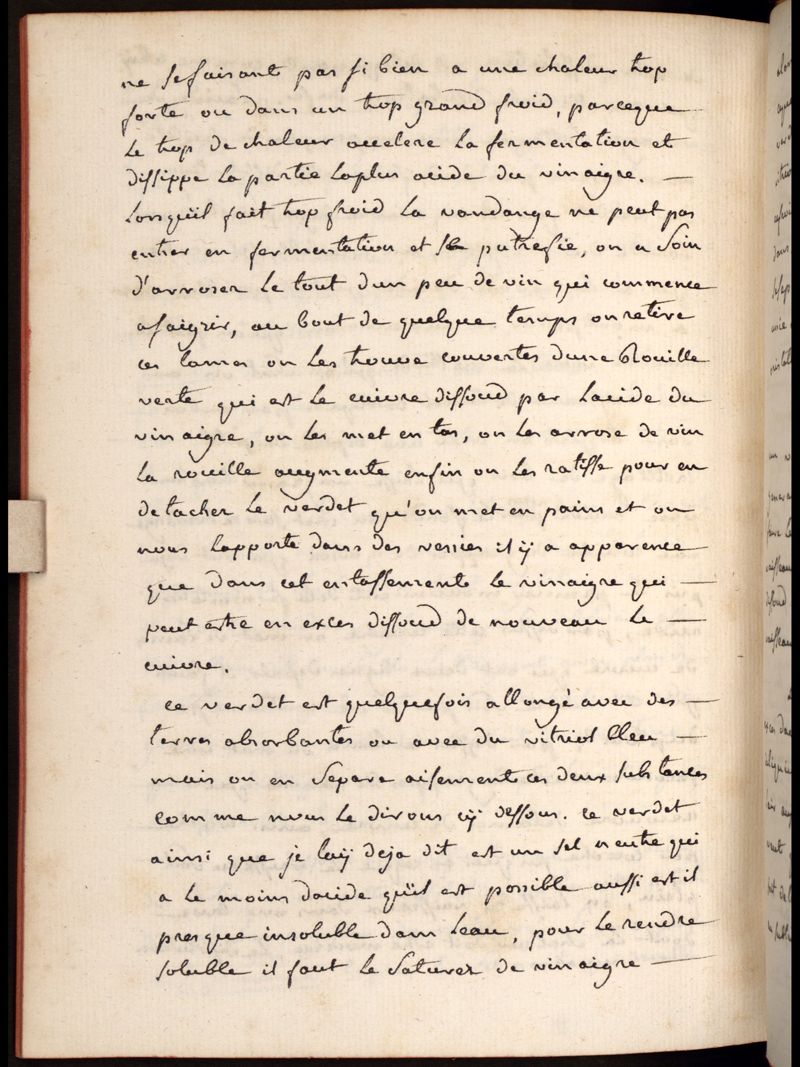 ne se faisant pas si bien a une chaleur trop
forte ou dans un trop grand froid, parceque
le trop de chaleur accelere la fermentation et
dissippe la partie laplus acide du vinaigre. —
Lorsquil fait trop froid la vandange ne peut pas
entrer en fermentation et se putrefie, on a soin
d'arroser le tout d'un peu de vin qui commence
a saigrir, au bout de quelque temps on retire
ces lames on les trouve couvertes dune Rouille
verte qui est le cuivre dissoud par lacide du
vinaigre, on les met en tas, on les arrose de vin
la rouille augmente enfin on les ratisse pour en
detacher le verdet qu'on met en pains et on
nous lapporte dans des vessies il ÿ a apparence
que dans cet entassement le vinaigre qui —
peut estre en exces dissoud de nouveau le —
cuivre.
ce verdet est quelquefois allongé avec des —
terres absorbantes ou avec du vitriol bleu —
mais on en separe aisement ces deux substances
comme nous le dirons cÿ dessous. ce verdet
ainsi que je laÿ deja dit est un sel neutre qui
a le moins dacide quil est possible aussi est il
presque insoluble dans leau, pour le rendre
soluble il faut le saturer de vinaigre —